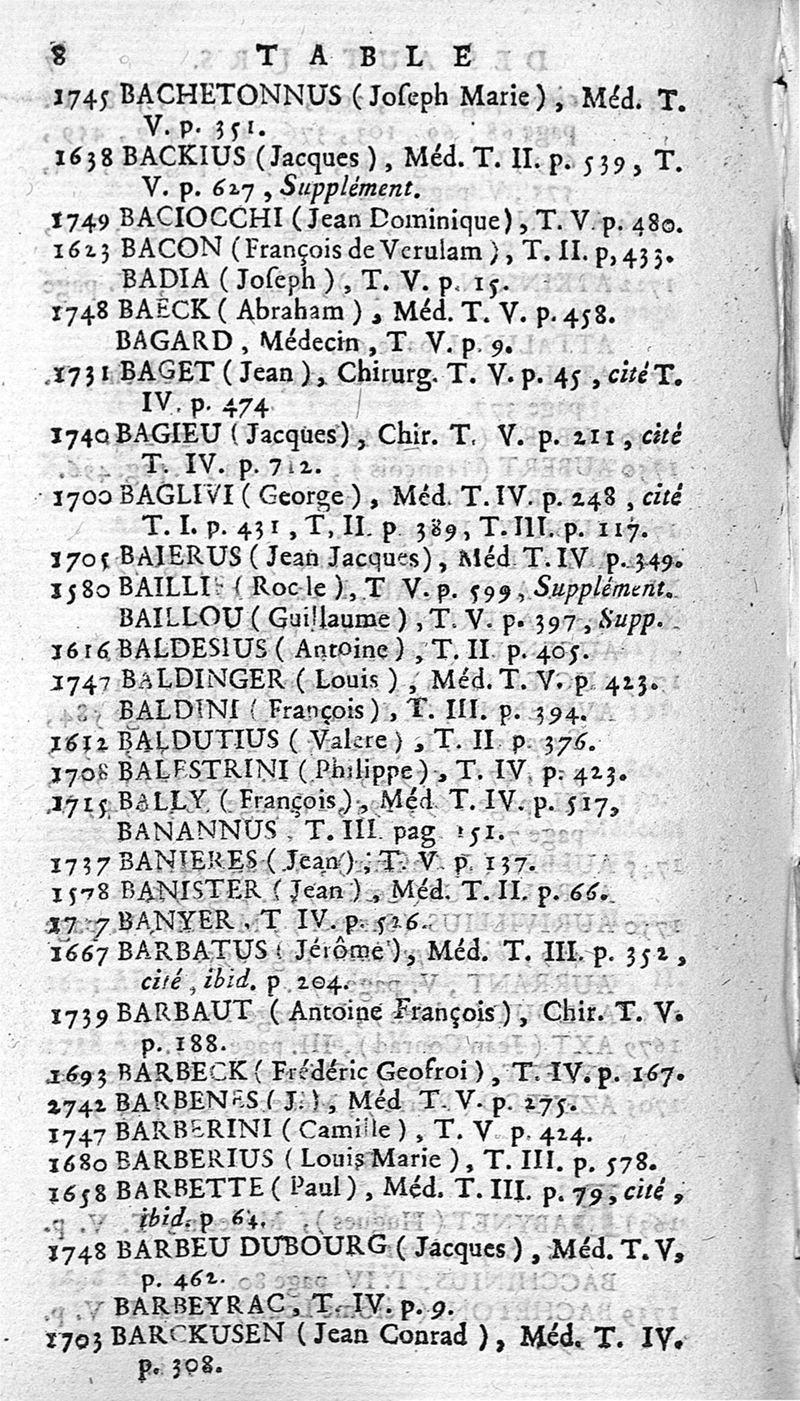 8 TABLE
1745 BACHETONNUS (Joſeph Marie), Méd. T.
V. p. 351.
1638 BACKIUS (Jacques), Méd. T. II. p. 539, T.
V. p. 627, Supplément.
1749 BACIOCCHI (Jean Dominique), T. V. p. 480.
1623 BACON (François de Verulam), T. II. p, 433.
BADIA (Joſeph), T. V. p. 15.
1748 BAECK (Abraham), Méd. T. V. p. 458.
BAGARD, Médecin, T V. p. 9.
1731 BAGET (Jean), Chirurg. T. V. p. 45, cité T.
IV. p. 474
1740 BAGIEU (Jacques), Chir. T. V. p. 211, cité
T. IV. p. 712.
1700 BAGLIVI (George), Méd. T. IV. p. 248, cité
T. I. p. 431, T, II. p 389, T. III. p. 117.
1705 BAIERUS (Jean Jacques), Méd T. IV p. 349.
1580 BAILLIF (Roc le), T V. p. 599, Supplément.
BAILLOU (Guillaume), T. V. p. 397, Supp.
1616 BALDESIUS (Antoine), T. II. p. 405.
1747 BALDINGER (Louis), Méd. T. V. p. 423.
BALDINI (François), T. III. p. 394.
1612 BALDUTIUS (Valere), T. II. p. 376.
1708 BALESTRINI (Philippe), T. IV. p. 423.
1715 BALLY (François), Méd. T. IV. p. 517,
BANANNUS, T. III. pag 151.
1737 BANIERES (Jean), T. V. p. 137.
1578 BANISTER (Jean), Méd. T. II. p. 66.
BANYER, T IV. p. 526.
1667 BARBATUS (Jérôme), Méd. T. III. p. 352,
cité, ibid. p 204.
1739 BARBAUT (Antoine François), Chir. T. V.
p. 188.
1693 BARBECK (Frédéric Geofroi), T. IV. p. 167.
2742 BARBENES (J.), Méd T. V. p. 275.
1747 BARBERINI (Camille), T. V. p. 424.
1680 BARBERIUS (Louis Marie), T. III. p. 578.
1658 BARBETTE (Paul), Méd. T. III. p. 79, cité,
ibid. p 64.
1748 BARBEU DUBOURG (Jacques), Méd. T. V,
p. 462.
BARBEYRAC, T. IV. p. 9.
1703 BARCKUSEN (Jean Conrad), Méd. T. IV.
p. 308.